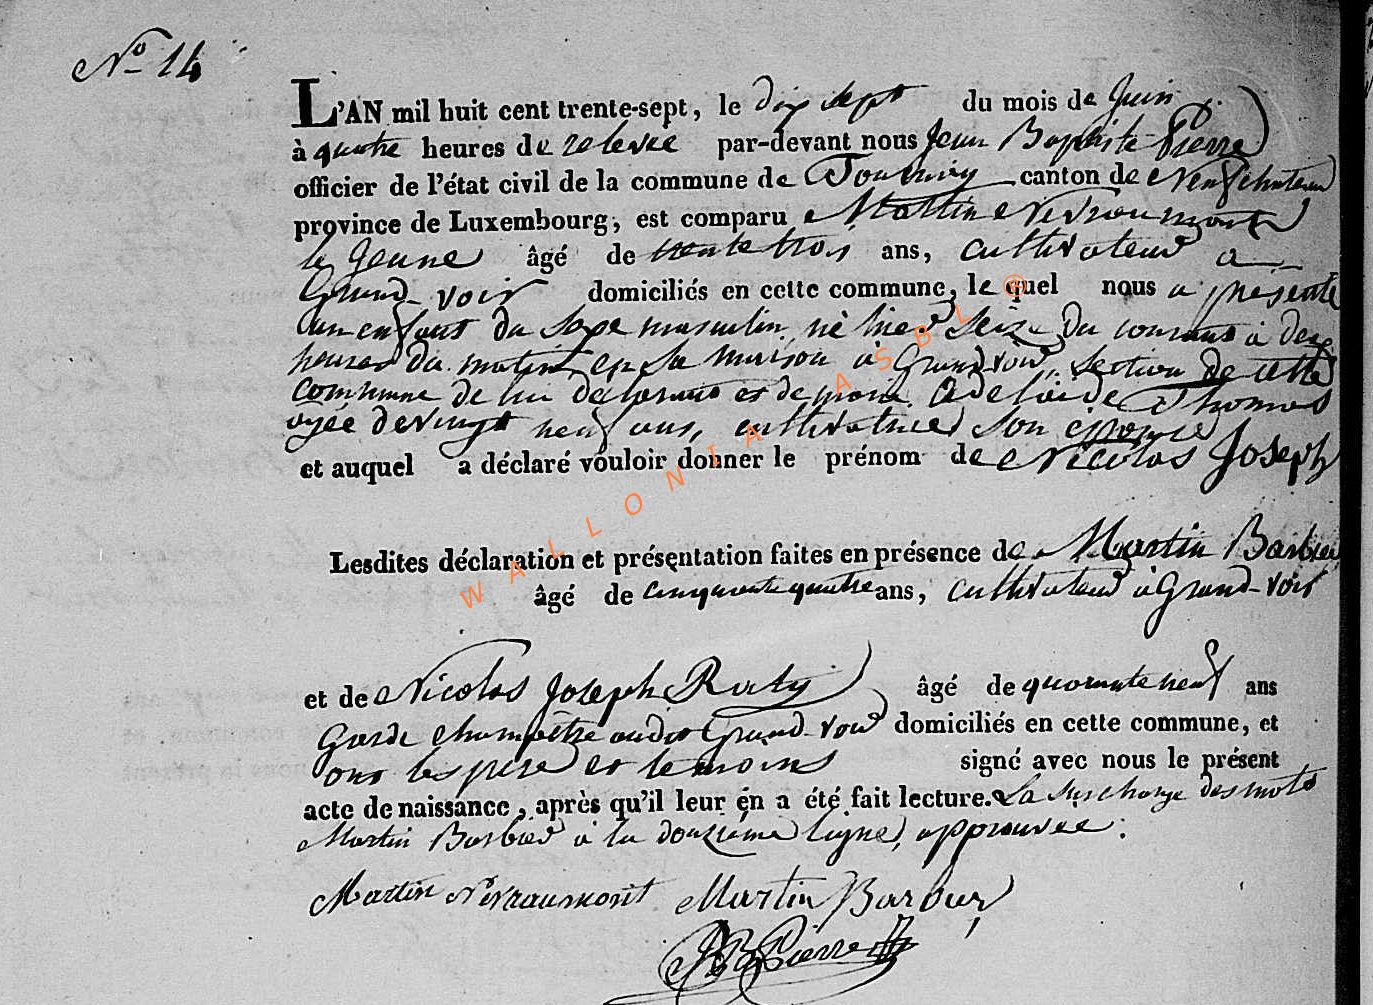 No 14
L'AN mil huit cent trente-sept, le dix sept du mois de Juin
à quatre heures de relevée par-devant nous Jean Baptiste Pierre
officier de l'état civil de la commune de Tournay canton de Neufchateau
province de Luxembourg, est comparu Martin Nevraumont
le Jeune âgé de trente trois ans, cultivateur a
Grand-voir domiciliés en cette commune, le quel nous a présenté
un enfant du sexe masculin, né hier seize du courant à dix
heures du matin, en sa maison à Grand-voir, section de cette
commune de lui déclarant et de marie Adelaïde Thomas
agée de vingt neuf ans, cultivatrice son épouse
et auquel a déclaré vouloir donner le prénom de Nicolas Joseph
Lesdites déclaration et présentation faites en présence de Martin Barbier
âgé de cinquante quatre ans, cultivateur à Grand-voir
et de Nicolas Joseph Raty âgé de quarante neuf ans
Garde champêtre audit Grand-voir domiciliés en cette commune, et
ont les père et temoins signé avec nous le présent
acte de naissance, après qu'il leur en a été fait lecture. La surcharge des mots
Martin Barbier à la douzième ligne, approuvée.
Martin Nevraumont Martin Barbier
JB Pierre
WALLONIA ASBL ®